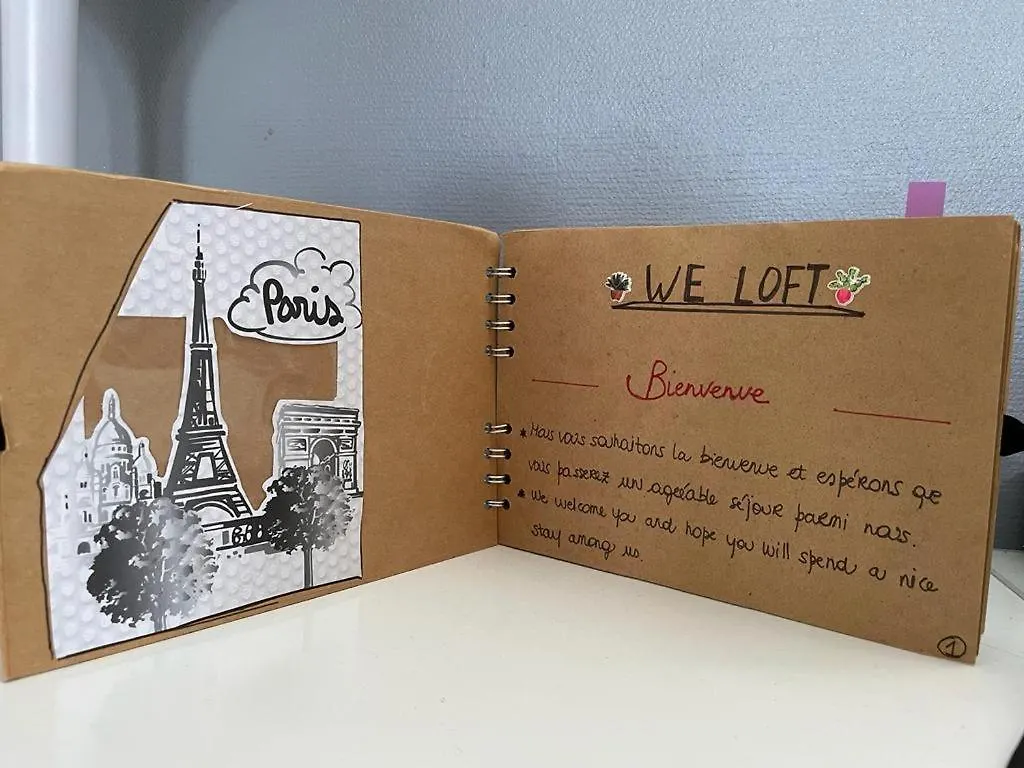 Paris
WE LOFT
Bienvenue
* Nous vous souhaitons la bienvenue et espérons que
vous passerez un agréable séjour parmi nous.
* We welcome you and hope you will spend a nice
stay among us.
1